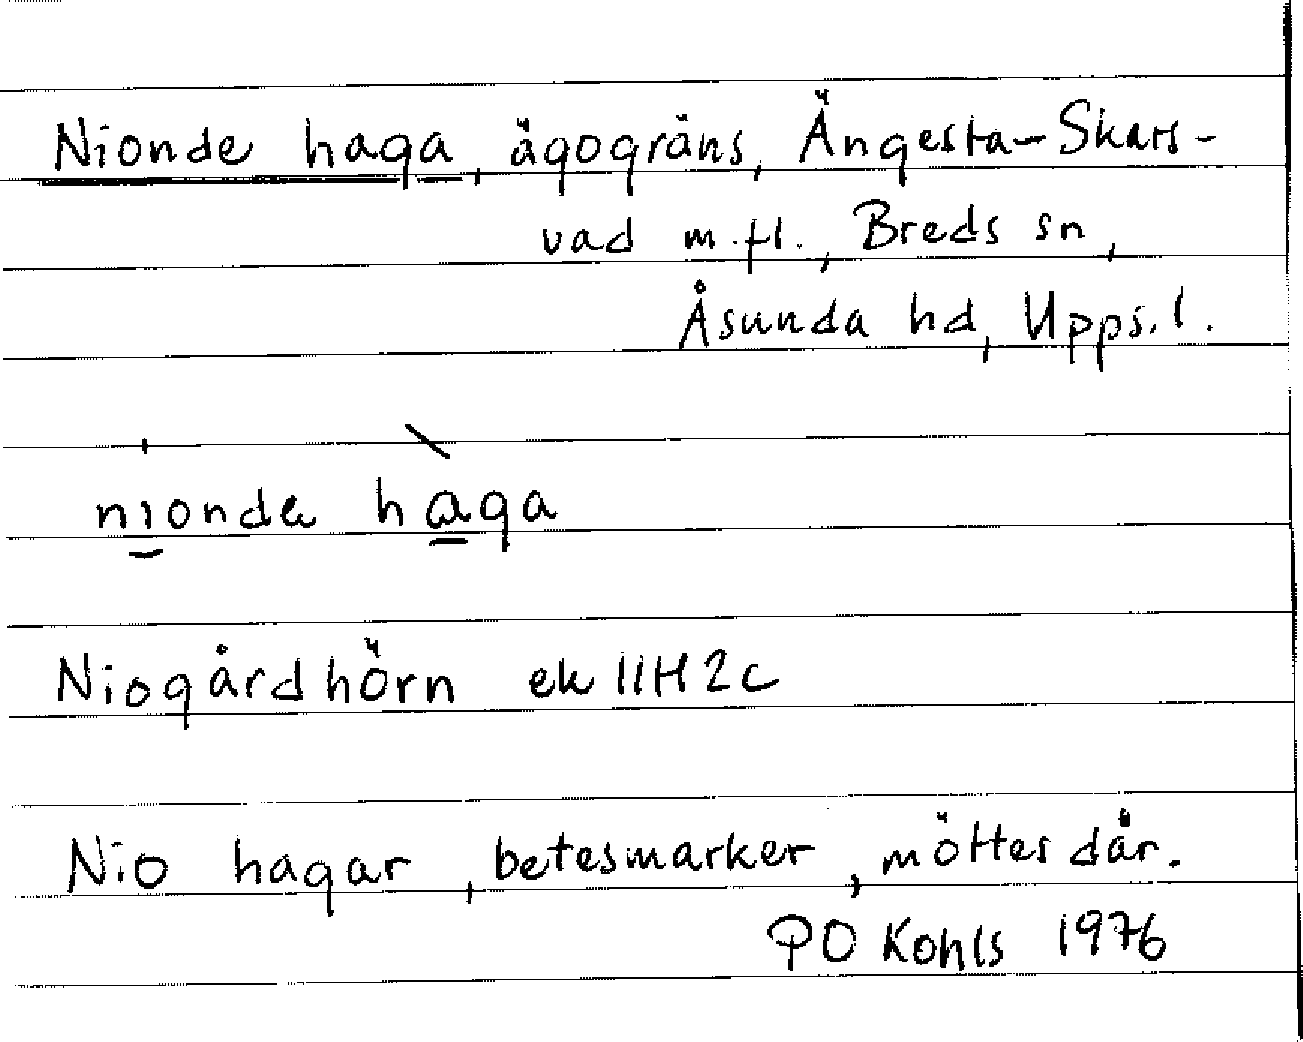 Nionde haga, ägogräns, Ängesta-Skars-
vad m.fl., Breds sn,
Åsunda hd, Upps. l.
nionda haga
Niogårdhörn ek 11H2c
Nio hagar, betesmarker, möttes där.
PO Kohls 1976